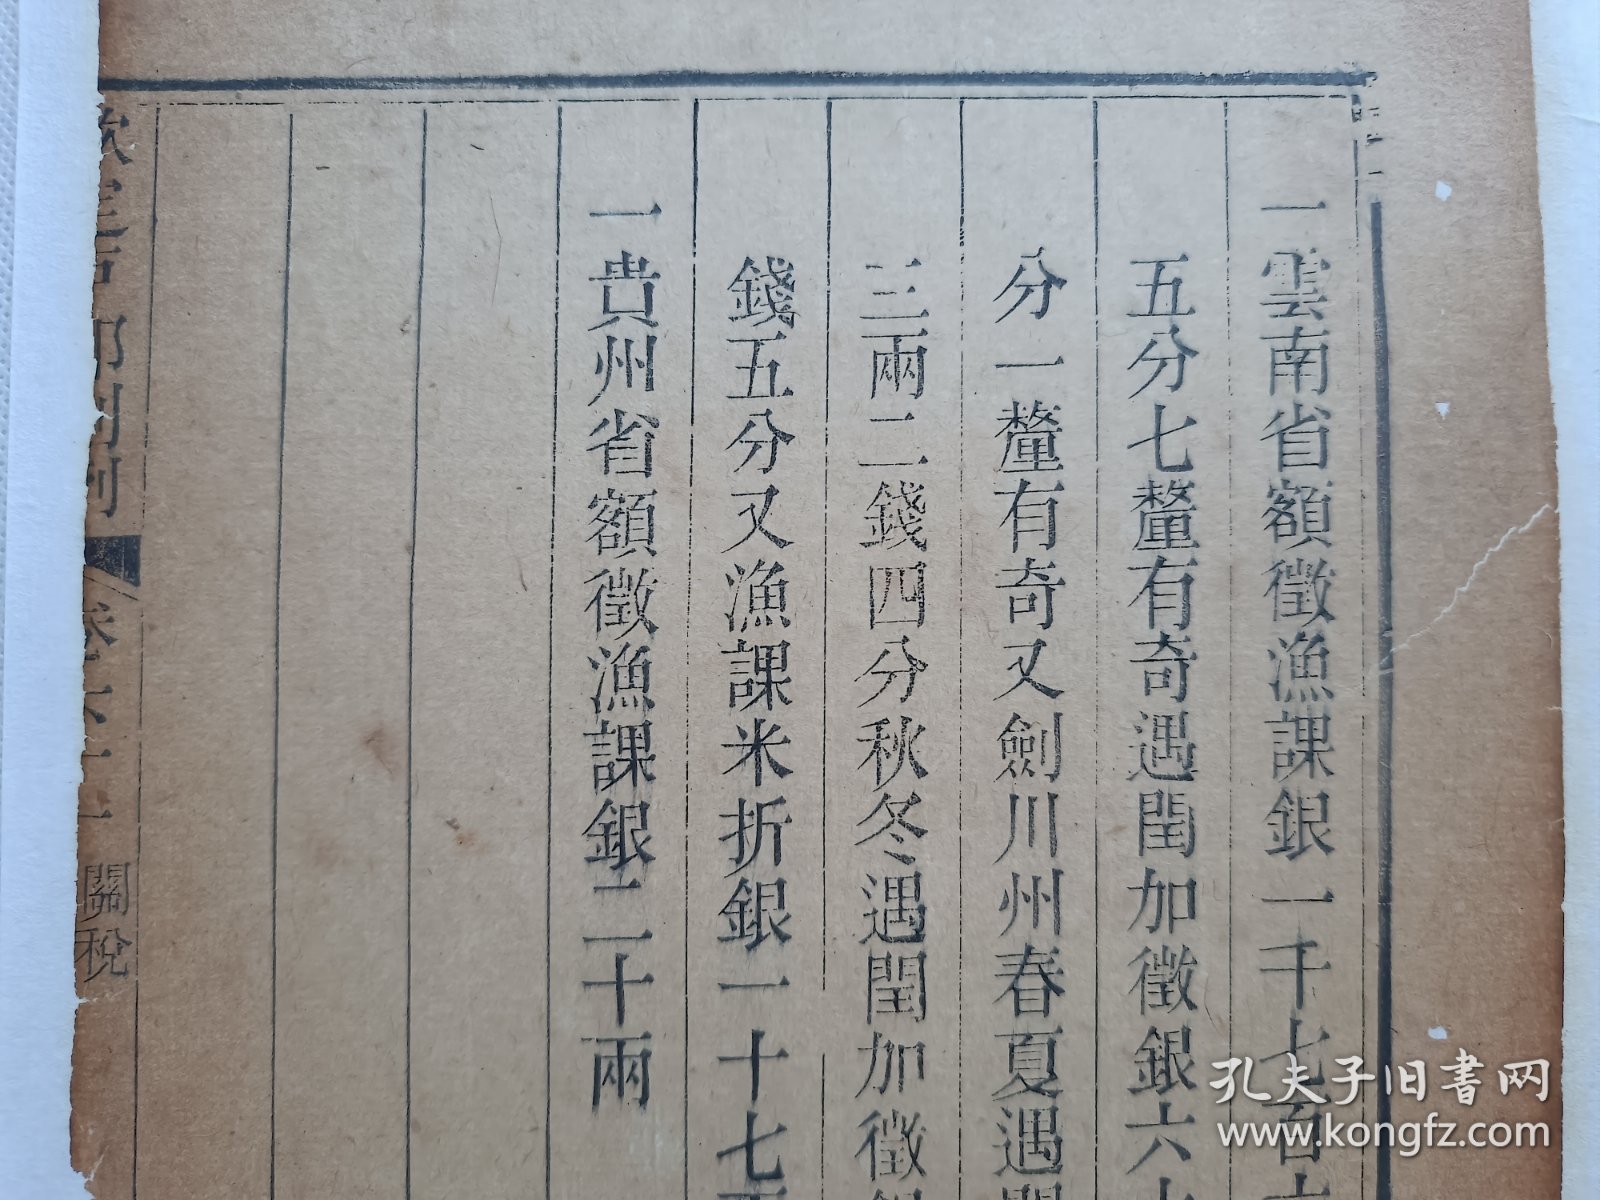 一雲南省額徵漁課銀一千七百
五分七釐有奇遇閏加徵銀六十
分一釐有奇又劍川州春夏遇閏
三兩二錢四分秋冬遇閏加徵銀
錢五分又漁課米折銀一十七兩
一貴州省額徵漁課銀二十兩
欽定戶部則例 卷六十一 關稅
孔夫子旧書网
www.kongfz.com